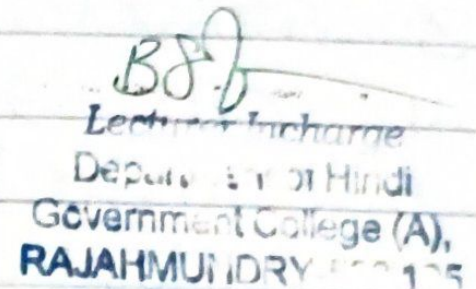 Lecturer Incharge
Department of Hindi
Government College (A),
RAJAHMUNDRY